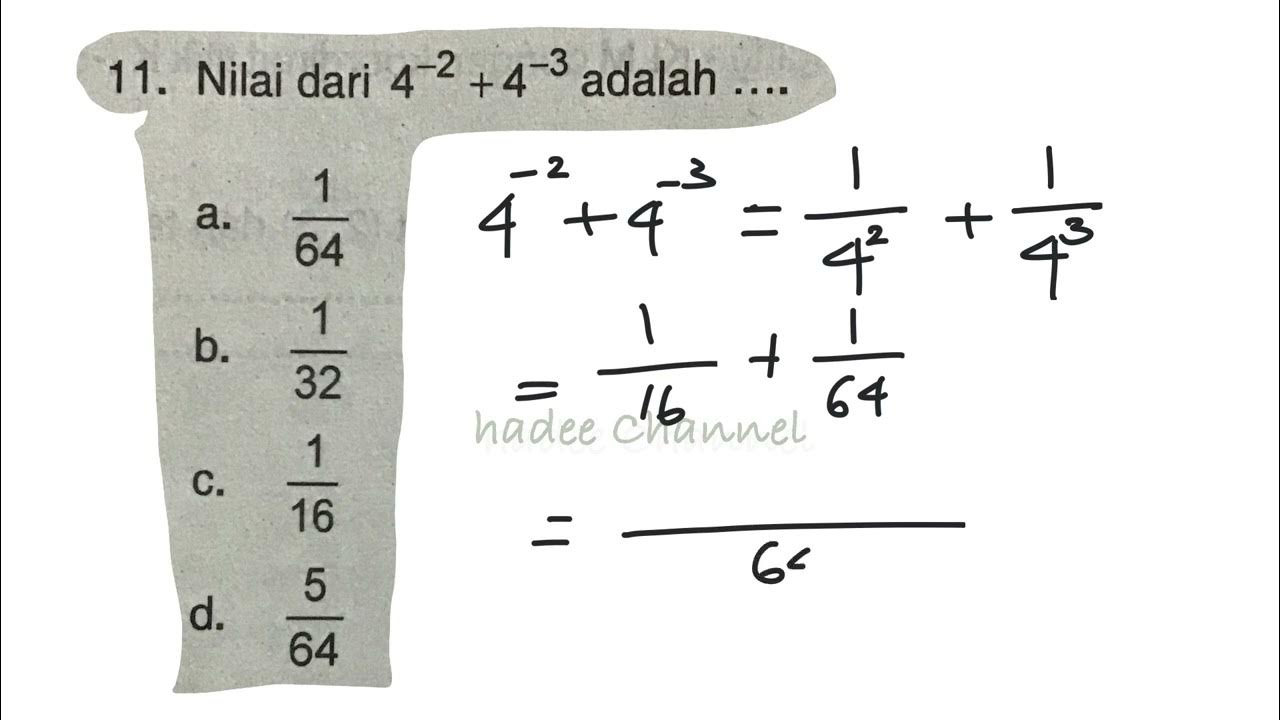 11. Nilai dari 4⁻² + 4⁻³ adalah ....
a. 1/64
b. 1/32
c. 1/16
d. 5/64
4⁻² + 4⁻³ = 1/4² + 1/4³
= 1/16 + 1/64
hadee Channel
= /6